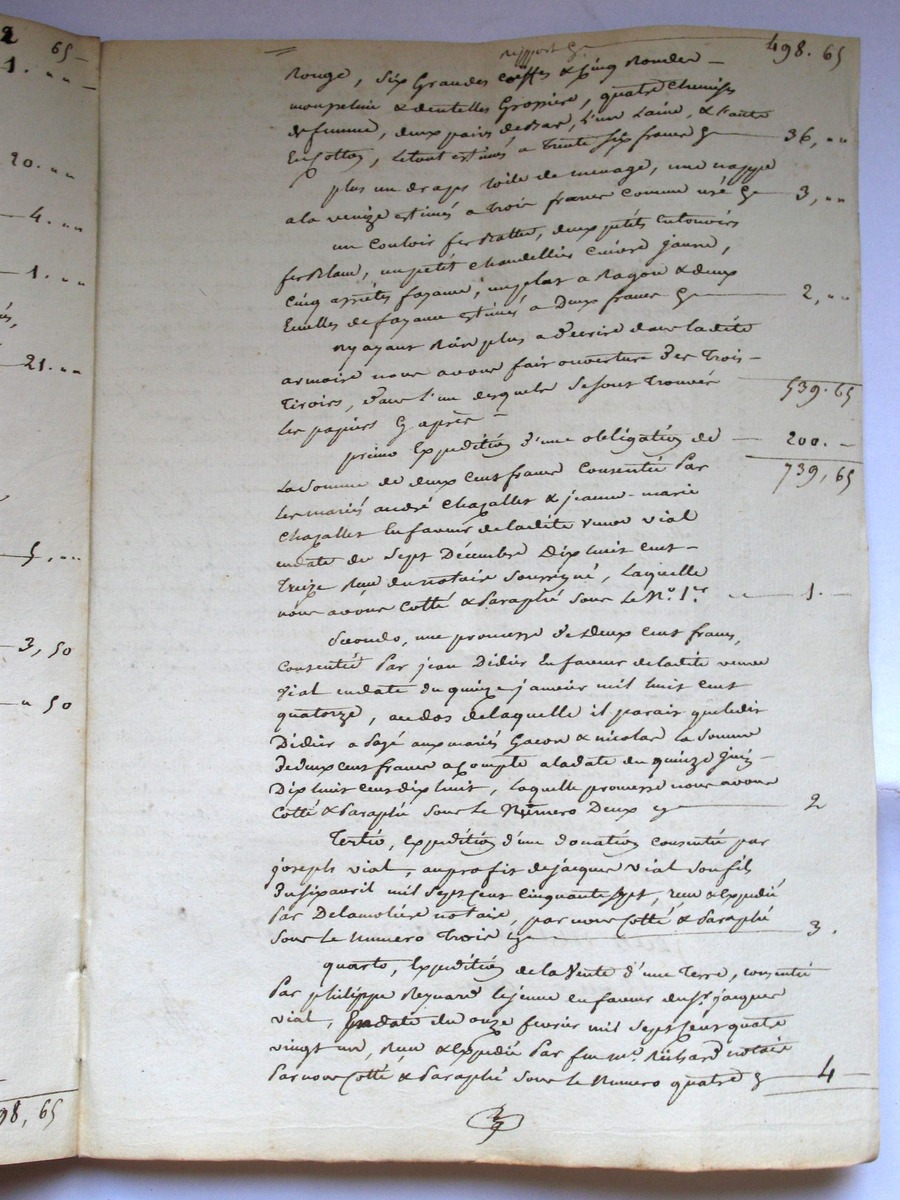 2 65 —
1. ""
20. ""
4. ""
1. ""
21. ""
5, ""
3, 50
" 50
98, 65
Report 498. 65
Rouge, Six Grandes Coëffes & Cinq Rondes —
mousseline & dentelles Grossiere, quatre Chemises
de femme, deux pairs de Bas, l'une Laine, & l'autre
En Cotton, le tout estimés a trente Six francs 36, ""
plus un drap toile de menage, une nappe
a la venize estimés a trois francs comme usé 3, ""
un Couloir fer Battu, deux petits Entonoirs
fer Blanc, un petit Chandellier Cuivre jaune,
Cinq assiétes fayance, un plat a Ragou & deux
Ecuelles de fayance estimés a Deux francs 2, ""
N'y ayant Rien plus a décrire dans ladite
armoire nous avons fait ouverture des Trois —
Tiroirs, dans l'un desquels se sont trouvés 539. 65
les papiers Cy après —
primo Expedition d'une obligation de — 200. —
La Somme de deux Cent francs Consentie Par 739, 65
Les mariés andré Chazallet & jeanne-marie
Chazallet En faveur de ladite veuve vial
en date du Sept Décembre Dix huit Cent —
Treize Reçu du notaire Soussigné, Laquelle
nous avons Cotté & Paraphé Sous le N.º 1.er 1. —
Secondo, une promesse de Deux Cent francs,
Consentie Par jean Didier En faveur de ladite veuve
Vial en date du quinze janvier mil huit Cent
quatorze, au dos de laquelle il parait que ledit
Didier a Payé aux mariés Gacon & nicolas la Somme
de deux Cent francs a Compte a la date du quinze juin
Dix huit Cent dix huit, Laquelle promesse nous avons
Cotté & Paraphé Sous le Numero Deux 2
Tertio, Expedition d'une donation Consentie par
joseph vial, au profit de jacques vial Son fils
du Six avril mil Sept Cent Cinquante Sept, reçu & Expedié
Par Delamoliere notaire, par nous Cotté & Paraphé
Sous le Numero Trois 3.
quarto, Expedition de la Vente d'une Terre, Consentie
Par philippe Reynard lejeune en faveur du S.r jacques
vial, En date du onze fevrier mil Sept Cent quatre
vingt un, Reçu & Expedié Par feu m.e Richard notaire
Par nous Cotté & Paraphé Sous le Numero quatre 4 —